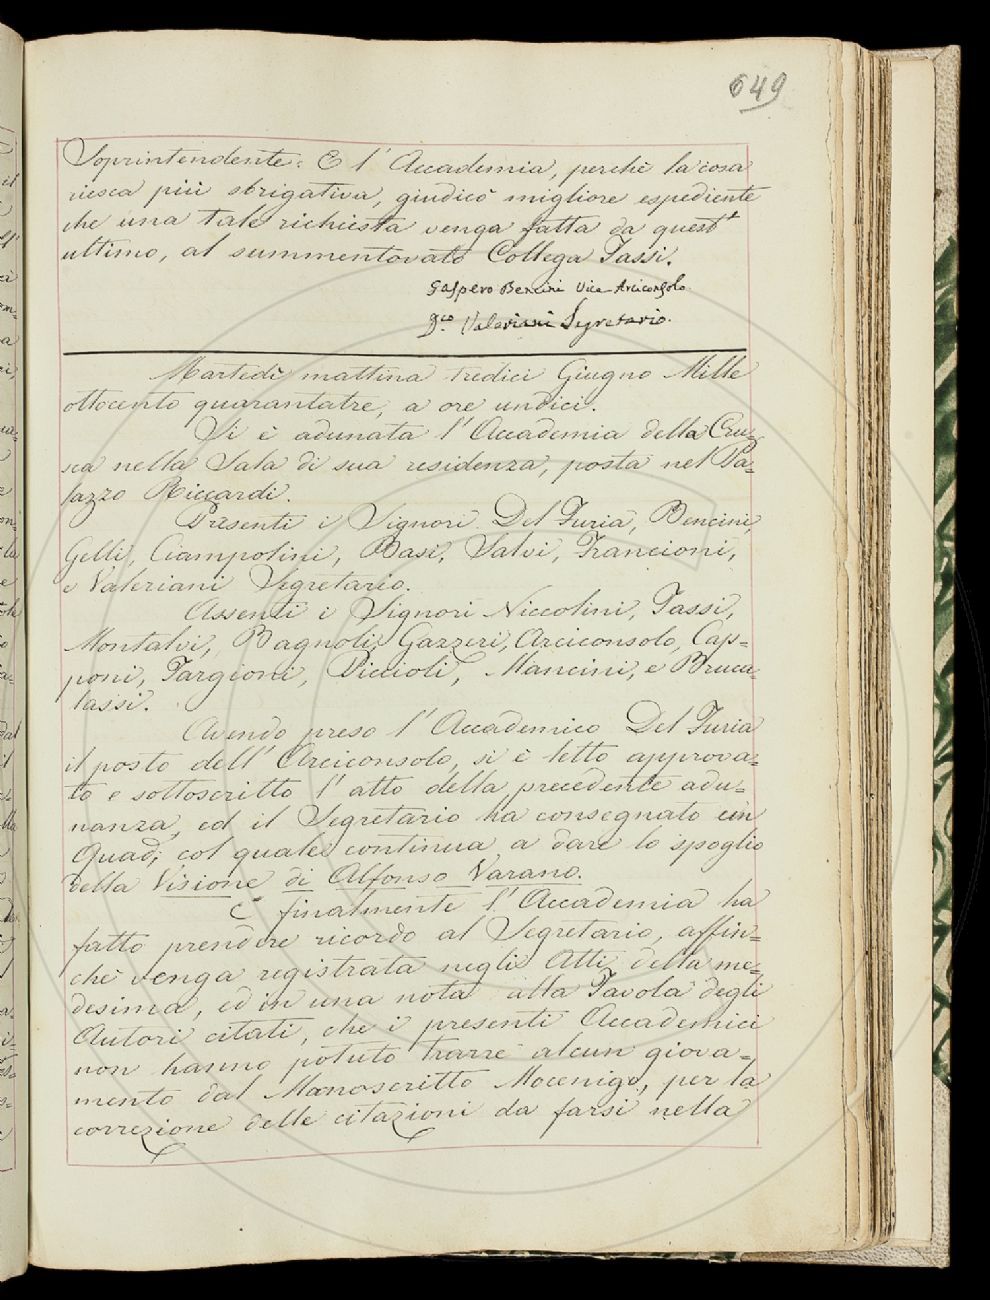 649
Soprintendente. E l'Accademia, perchè la cosa
riesca più sbrigativa, giudicò migliore espediente
che una tale richiesta venga fatta da quest'
ultimo, al summentovato Collega Tassi.
Gaspero Bencini Vice-Arciconsolo.
Valeriani Segretario.
Martedì mattina tredici Giugno Mille
ottocento quarantatre, a ore undici.
Si è adunata l'Accademia della Cru-
sca nella Sala di sua residenza, posta nel Pa-
lazzo Riccardi.
Presenti i Signori Del Furia, Bencini,
Gelli, Ciampolini, Basi, Salvi, Francioni,
e Valeriani Segretario.
Assenti i Signori Niccolini, Tassi,
Montalvi, Bagnoli, Gazzeri, Arciconsolo, Cap-
poni, Targioni, Piccioli, Mancini, e Brucu-
lassi.
Avendo preso l'Accademico Del Furia
il posto dell'Arciconsolo, si è letto approva-
to e sottoscritto l'atto della precedente adu-
nanza, ed il Segretario ha consegnato un
Quad; col quale continua a dare lo spoglio
della Visione di Alfonso Varano.
E finalmente l'Accademia ha
fatto prendere ricordo al Segretario, affin-
chè venga registrata negli Atti della me-
desima, ed in una nota alla Tavola degli
Autori citati, che i presenti Accademici
non hanno potuto trarre alcun giova-
mento dal Manoscritto Mocenigo, per la
correzione delle citazioni da farsi nella